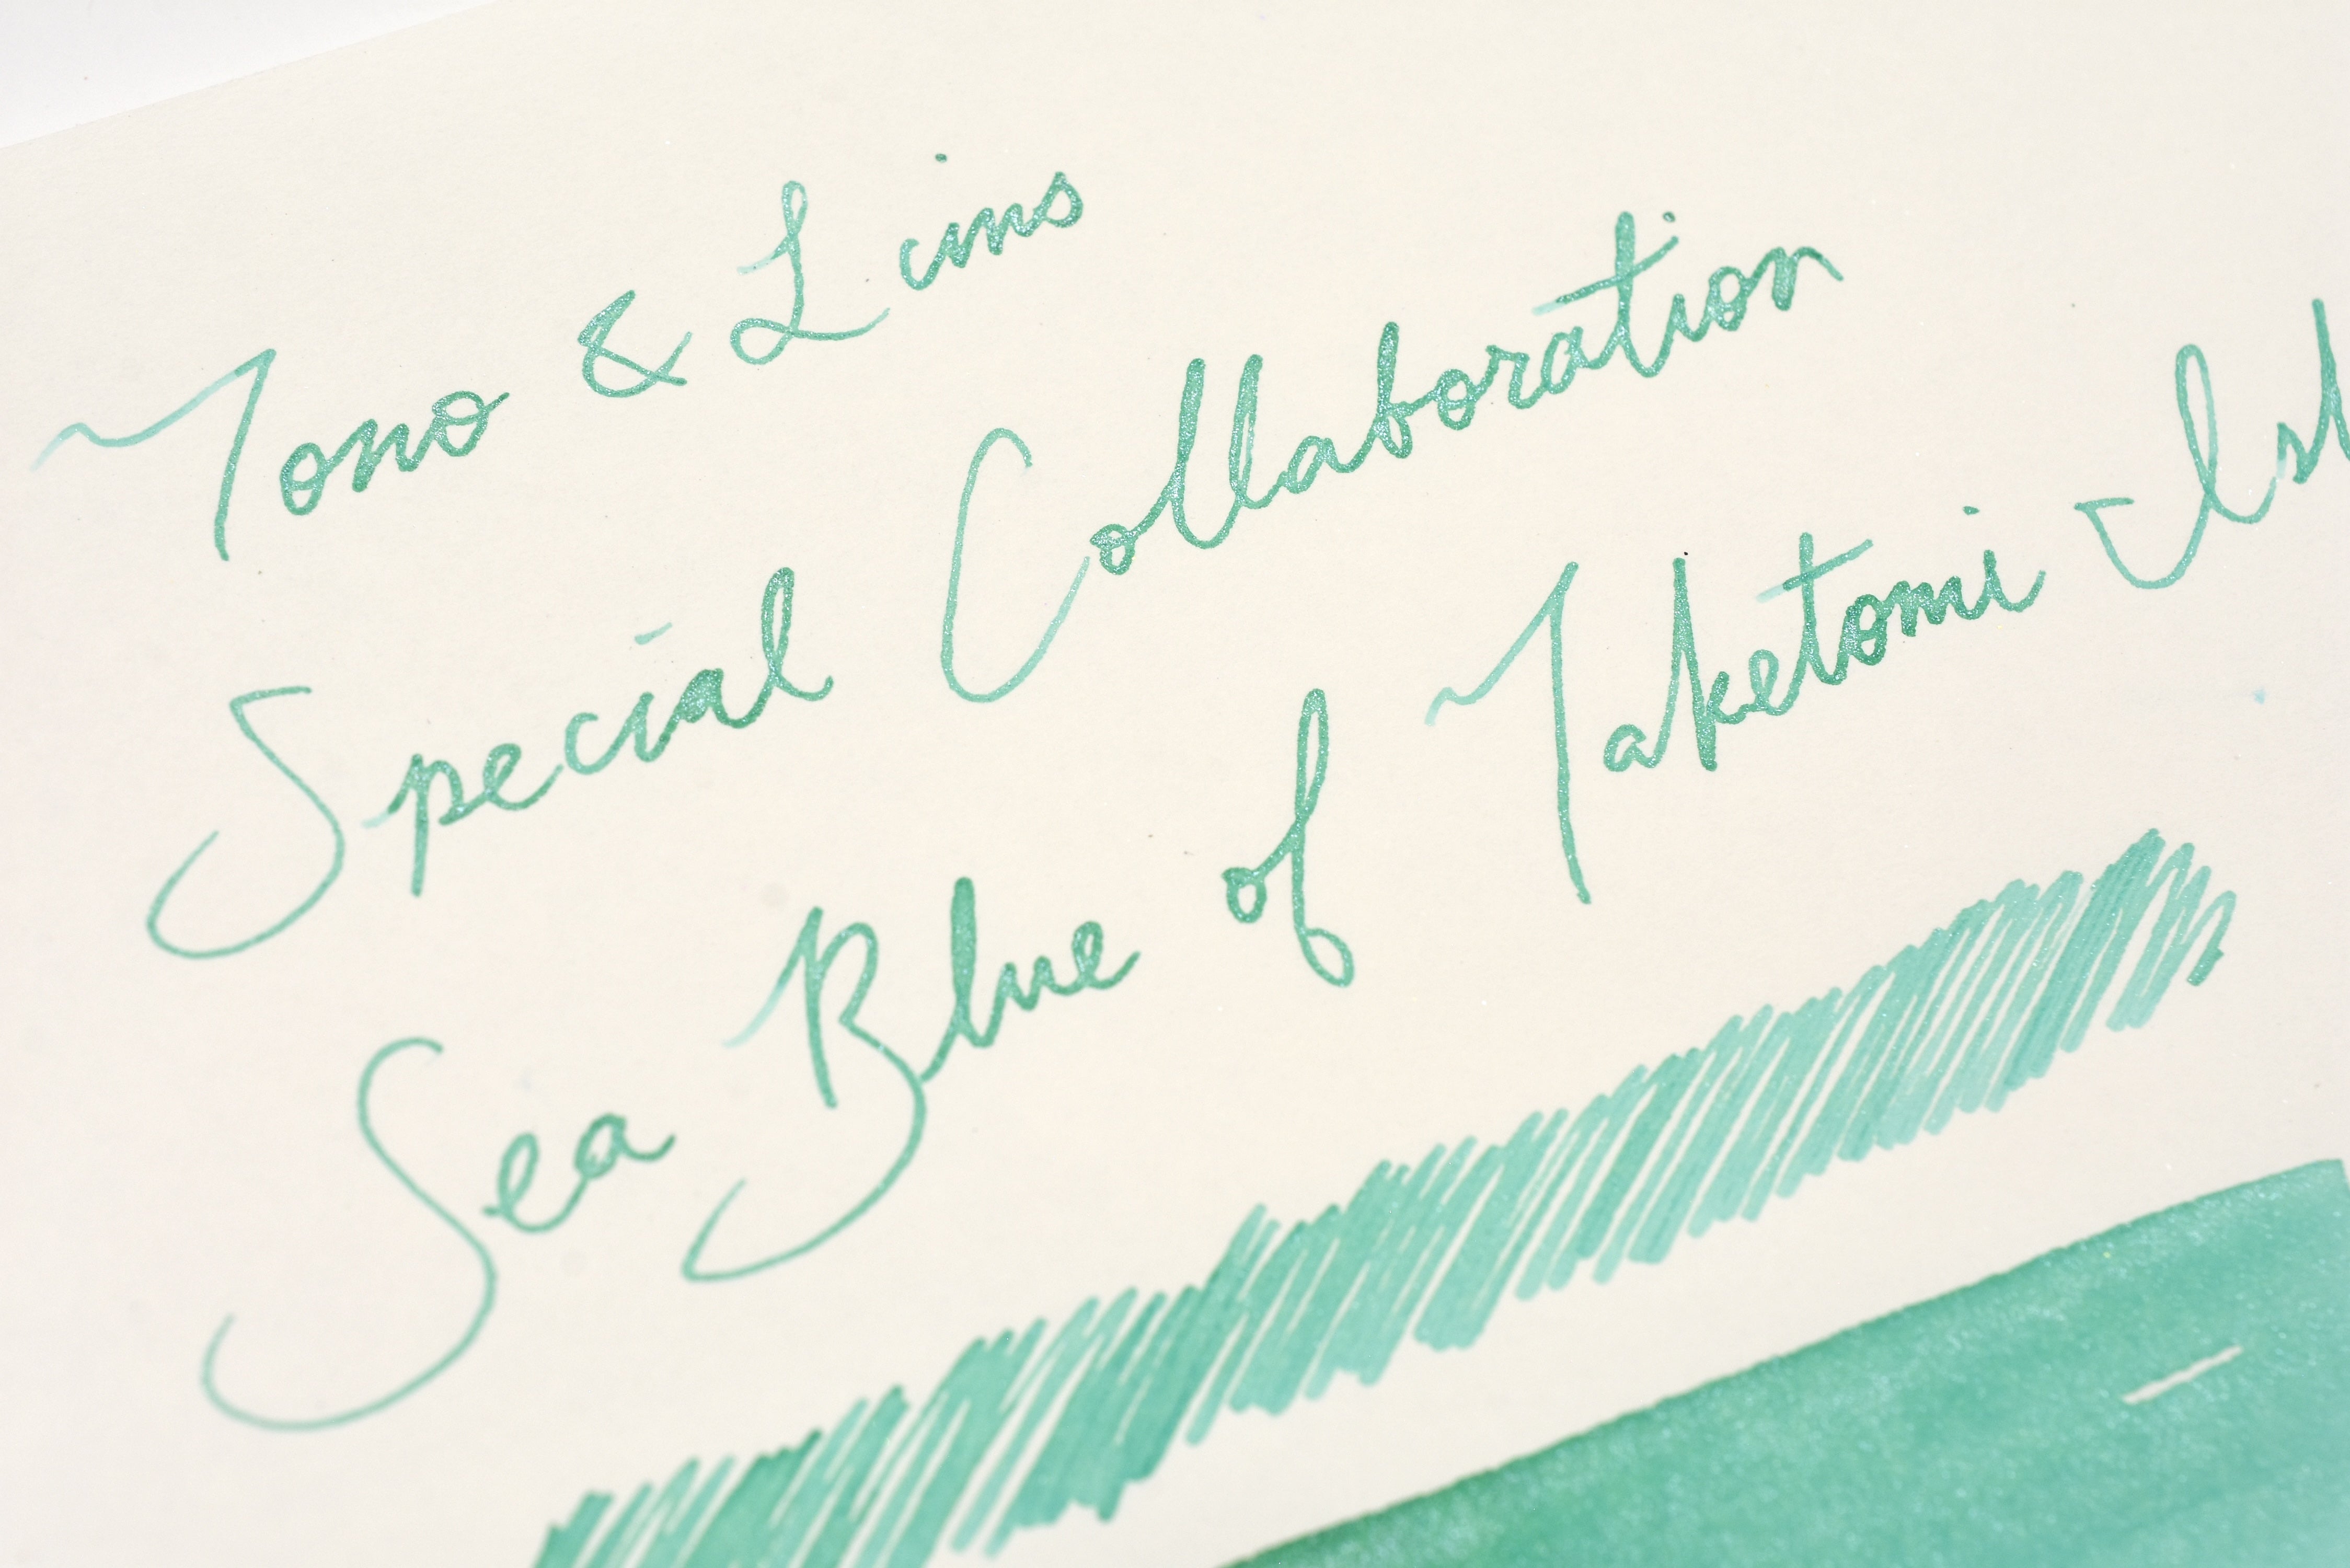 Tono & Lims
Special Collaboration
Sea Blue of Taketomi Isl